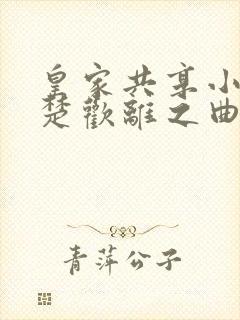 皇家共享小
楚歡離之曲
青萍公子